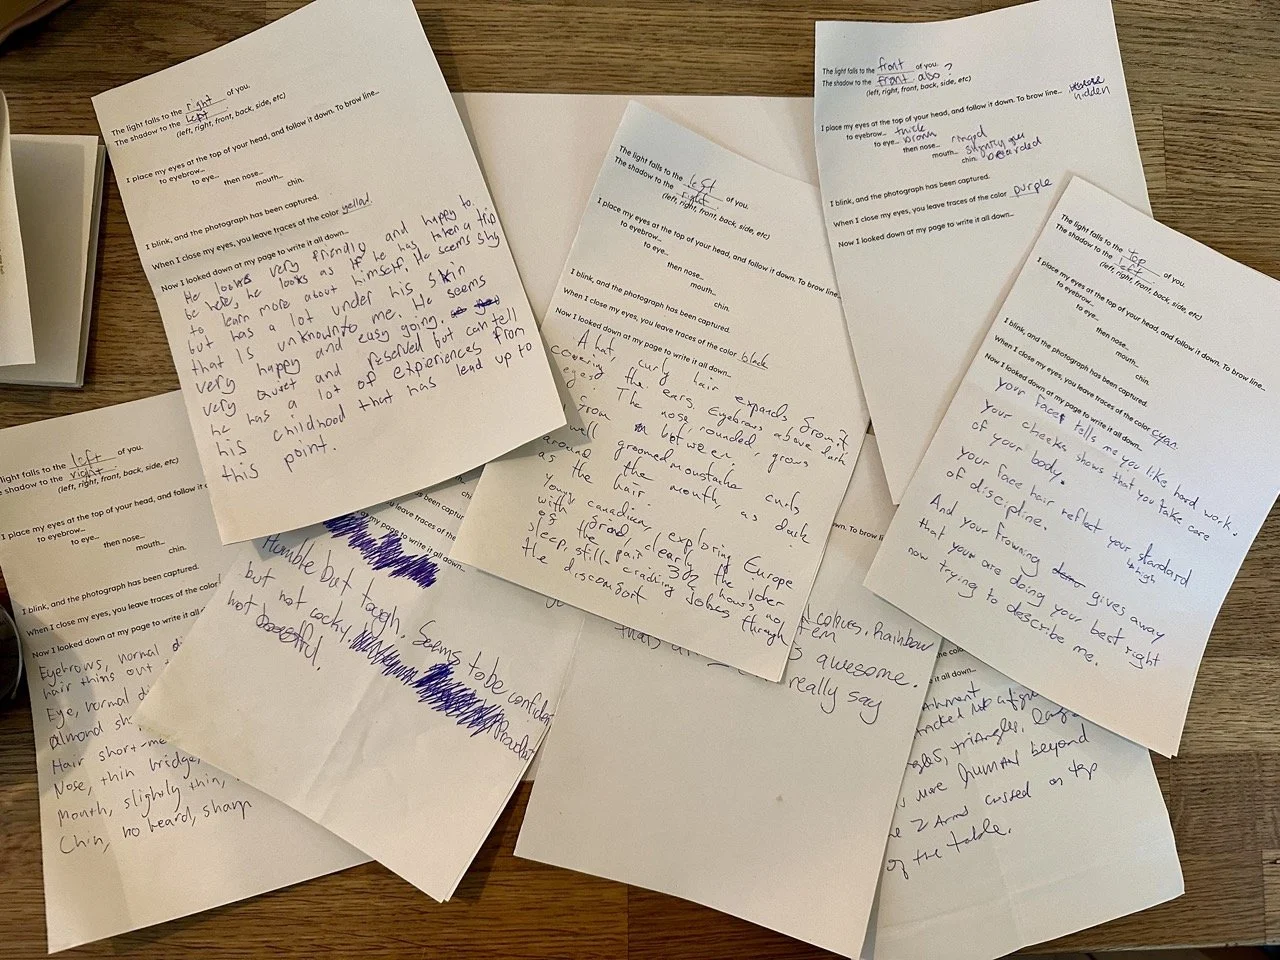 The light falls to the right of you.
The shadow to the left
(left, right, front, back, side, etc)
I place my eyes at the top of your head, and follow it down. To brow line...
to eyebrow...
to eye...
then nose...
mouth...
chin.
I blink, and the photograph has been captured.
When I close my eyes, you leave traces of the color yellow.
Now I looked down at my page to write it all down...
He looks very friendly and happy to
be here, he looks as if he has taken a trip
to learn more about himself. He seems shy
but has a lot under his skin
that is unknown to me. He seems
very happy and easy going.
very quiet and reserved but can tell
he has a lot of experiences from
his childhood that has lead up to
this point.
The light falls to the left of you.
The shadow to the right
(left, right, front, back, side, etc)
I place my eyes at the top of your head, and follow it down. To brow line...
to eyebrow...
to eye...
then nose...
mouth...
chin.
I blink, and the photograph has been captured.
When I close my eyes, you leave traces of the color black
Now I looked down at my page to write it all down...
A hat, curly hair expands from it
covering the ears. Eyebrows above dark
eyes. The nose, rounded, grows
from between.
well groomed moustache curls
around the mouth, as dark
as the hair.
Young canadian, exploring Europe
with friend, clearly the joker
of the pair. 30+ hours no
sleep, still cracking jokes through
the discomfort.
The light falls to the front of you.
The shadow to the front also?
(left, right, front, back, side, etc)
I place my eyes at the top of your head, and follow it down. To brow line...
hidden
to eyebrow... thick
to eye... brown
then nose... ringed
mouth...
chin. bearded
I blink, and the photograph has been captured.
When I close my eyes, you leave traces of the color purple
Now I looked down at my page to write it all down...
The light falls to the top of you.
The shadow to the left
(left, right, front, back, side, etc)
I place my eyes at the top of your head, and follow it down. To brow line...
to eyebrow...
to eye...
then nose...
mouth...
chin.
I blink, and the photograph has been captured.
When I close my eyes, you leave traces of the color cyan
Now I looked down at my page to write it all down...
your face tells me you like hard work.
your cheeks shows that you take care
of your body.
your face hair reflect your standard
of discipline. high
And your frowning gives away
that your are doing your best right
now trying to describe me.
light falls to the left of you.
shadow to the right
(left, right, front, back, side, etc)
I place my eyes at the top of your head, and follow it
to eyebrow...
to eye...
then nose...
mouth...
chin.
I blink, and the photograph has been captured.
When I close my eyes, you leave traces of the color
Now I looked down at my page to write it all
Eyebrows, normal
hair thins out
Eye, normal
almond
Hair short-
Nose, thin bridge,
Mouth, slightly thin,
Chin, no beard, sharp
been captured.
traces of the color
my page to write it all down...
Humble but tough. Seems to be confident
but not cocky.
not
down. To brow line...
rainbow
awesome.
really say
the color
it all down...
triangles,
more human beyond
2 Arms crossed on top
of the table.